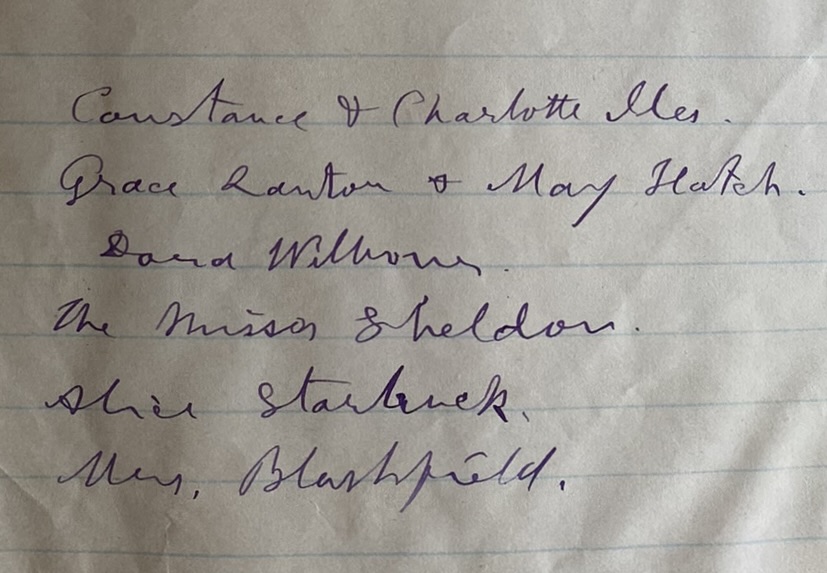 Constance & Charlotte Iles.
Grace & May Hatch.
David
The Misses Sheldon.
Alice Starbuck.
Mrs. Blashfield.